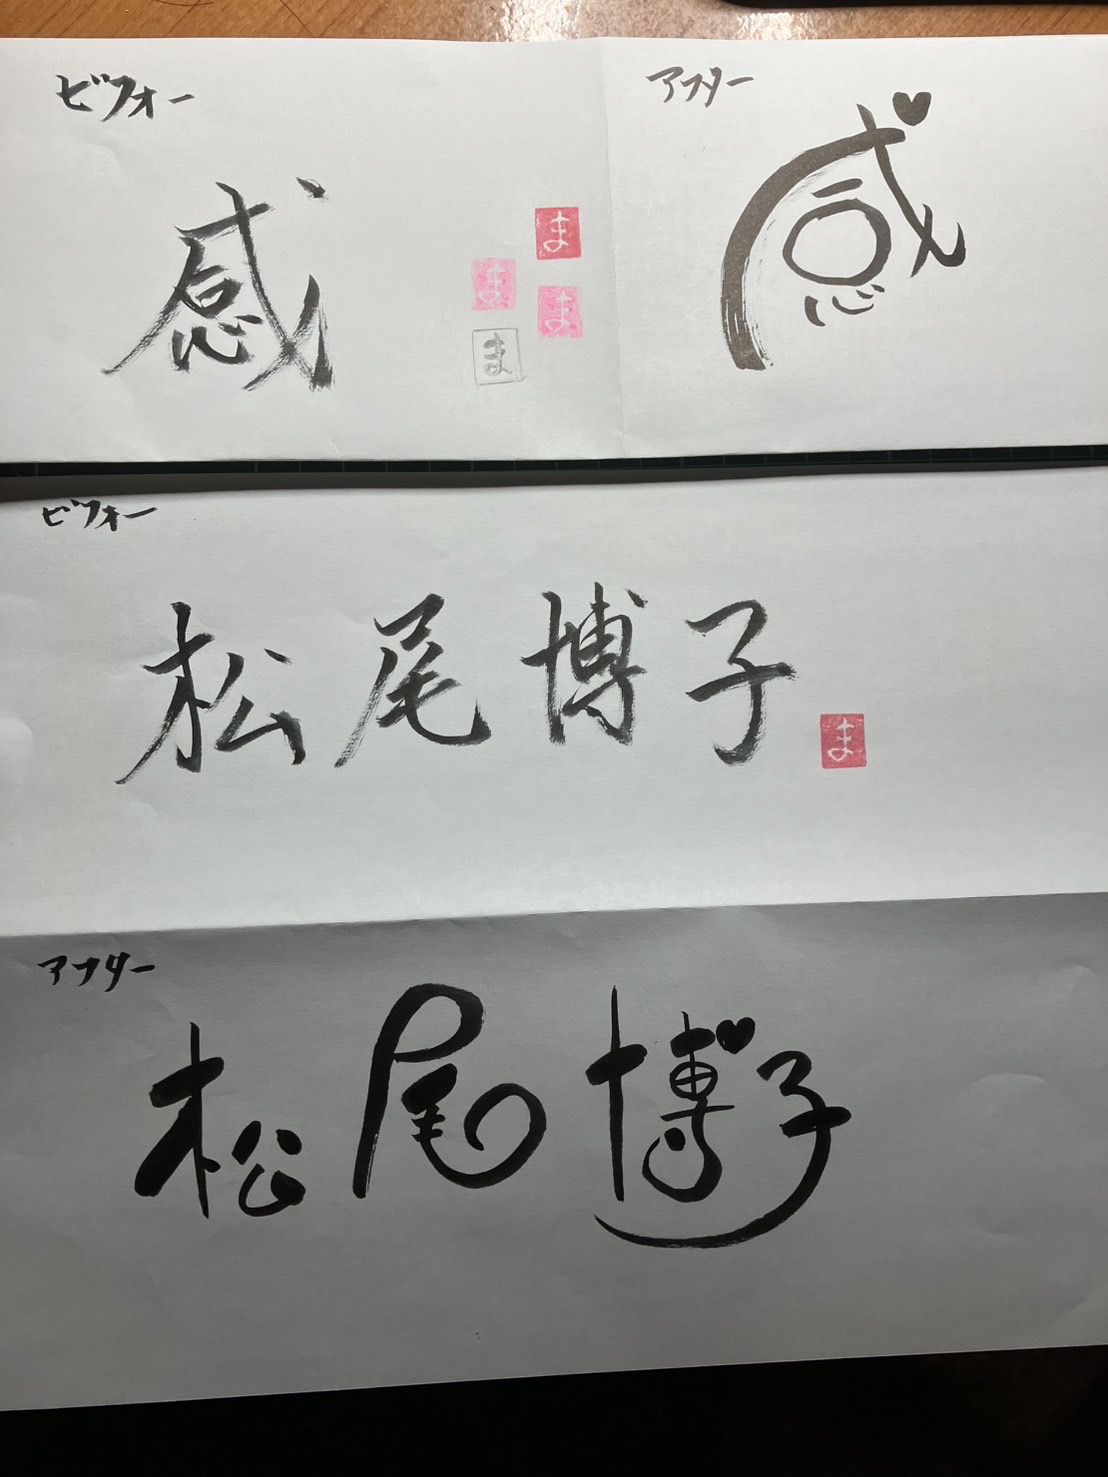 ビフォー
感
ま
ま
ま
ま
アフター
感
ビフォー
松尾博子
ま
アフター
松尾博子